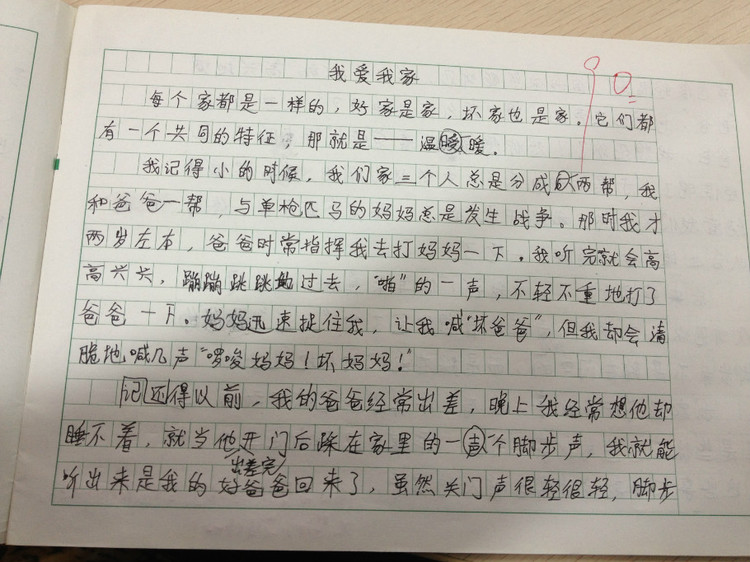 我爱我家
90
每个家都是一样的，好家是家，坏家也是家。它们都
有一个共同的特征，那就是——温暖暖。
我记得小的时候，我们家三个人总是分成两帮，我
和爸爸一帮，与单枪匹马的妈妈总是发生战争。那时我才
两岁左本，爸爸时常指挥我去打妈妈一下。我听完就会高
高兴兴，蹦蹦跳跳地过去，“啪”的一声，不轻不重地打了
爸爸一下。妈妈迅速捉住我，让我喊“坏爸爸”，但我却会清
脆地喊几声“啰唆妈妈！坏妈妈！”
记还得以前，我的爸爸经常出差，晚上我经常想他却
睡不着，就当他开门后踩在家里的一声个脚步声，我就能
出差完
听出来是我的好爸爸回来了，虽然关门声很轻很轻，脚步